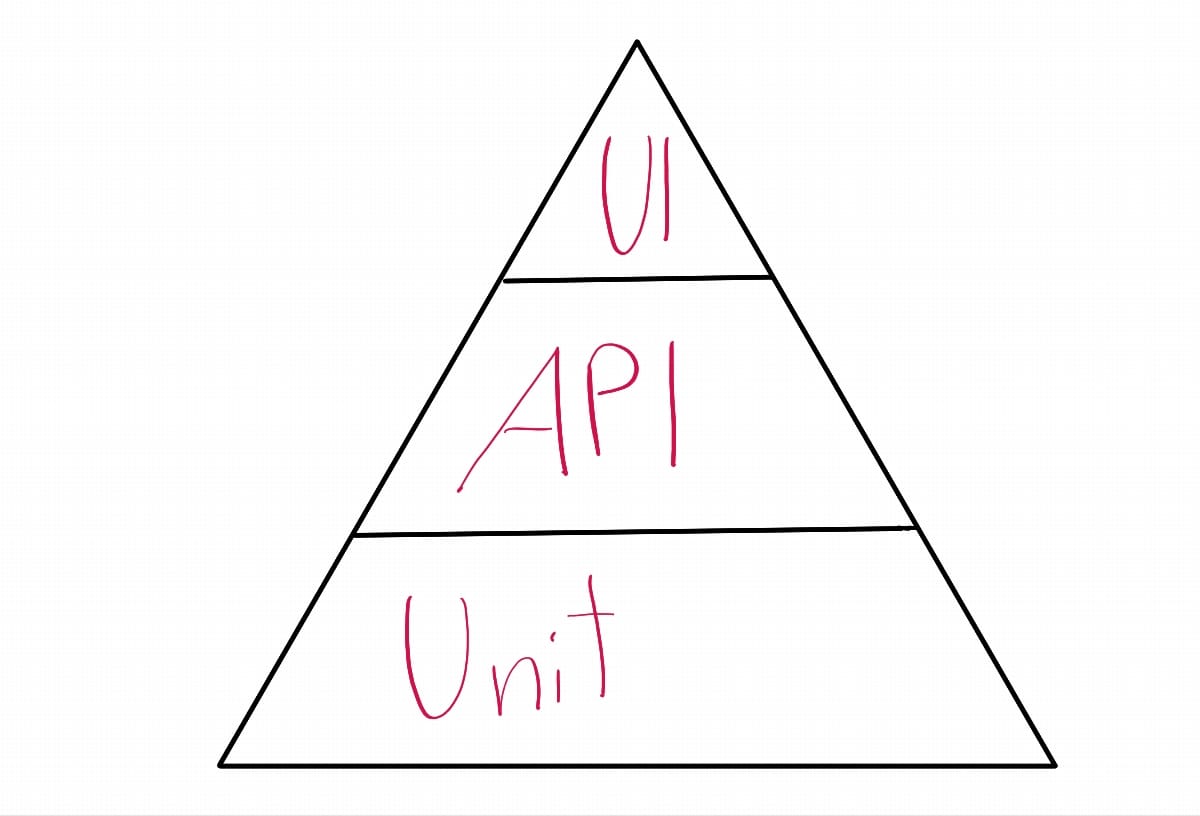 UI
API
Unit